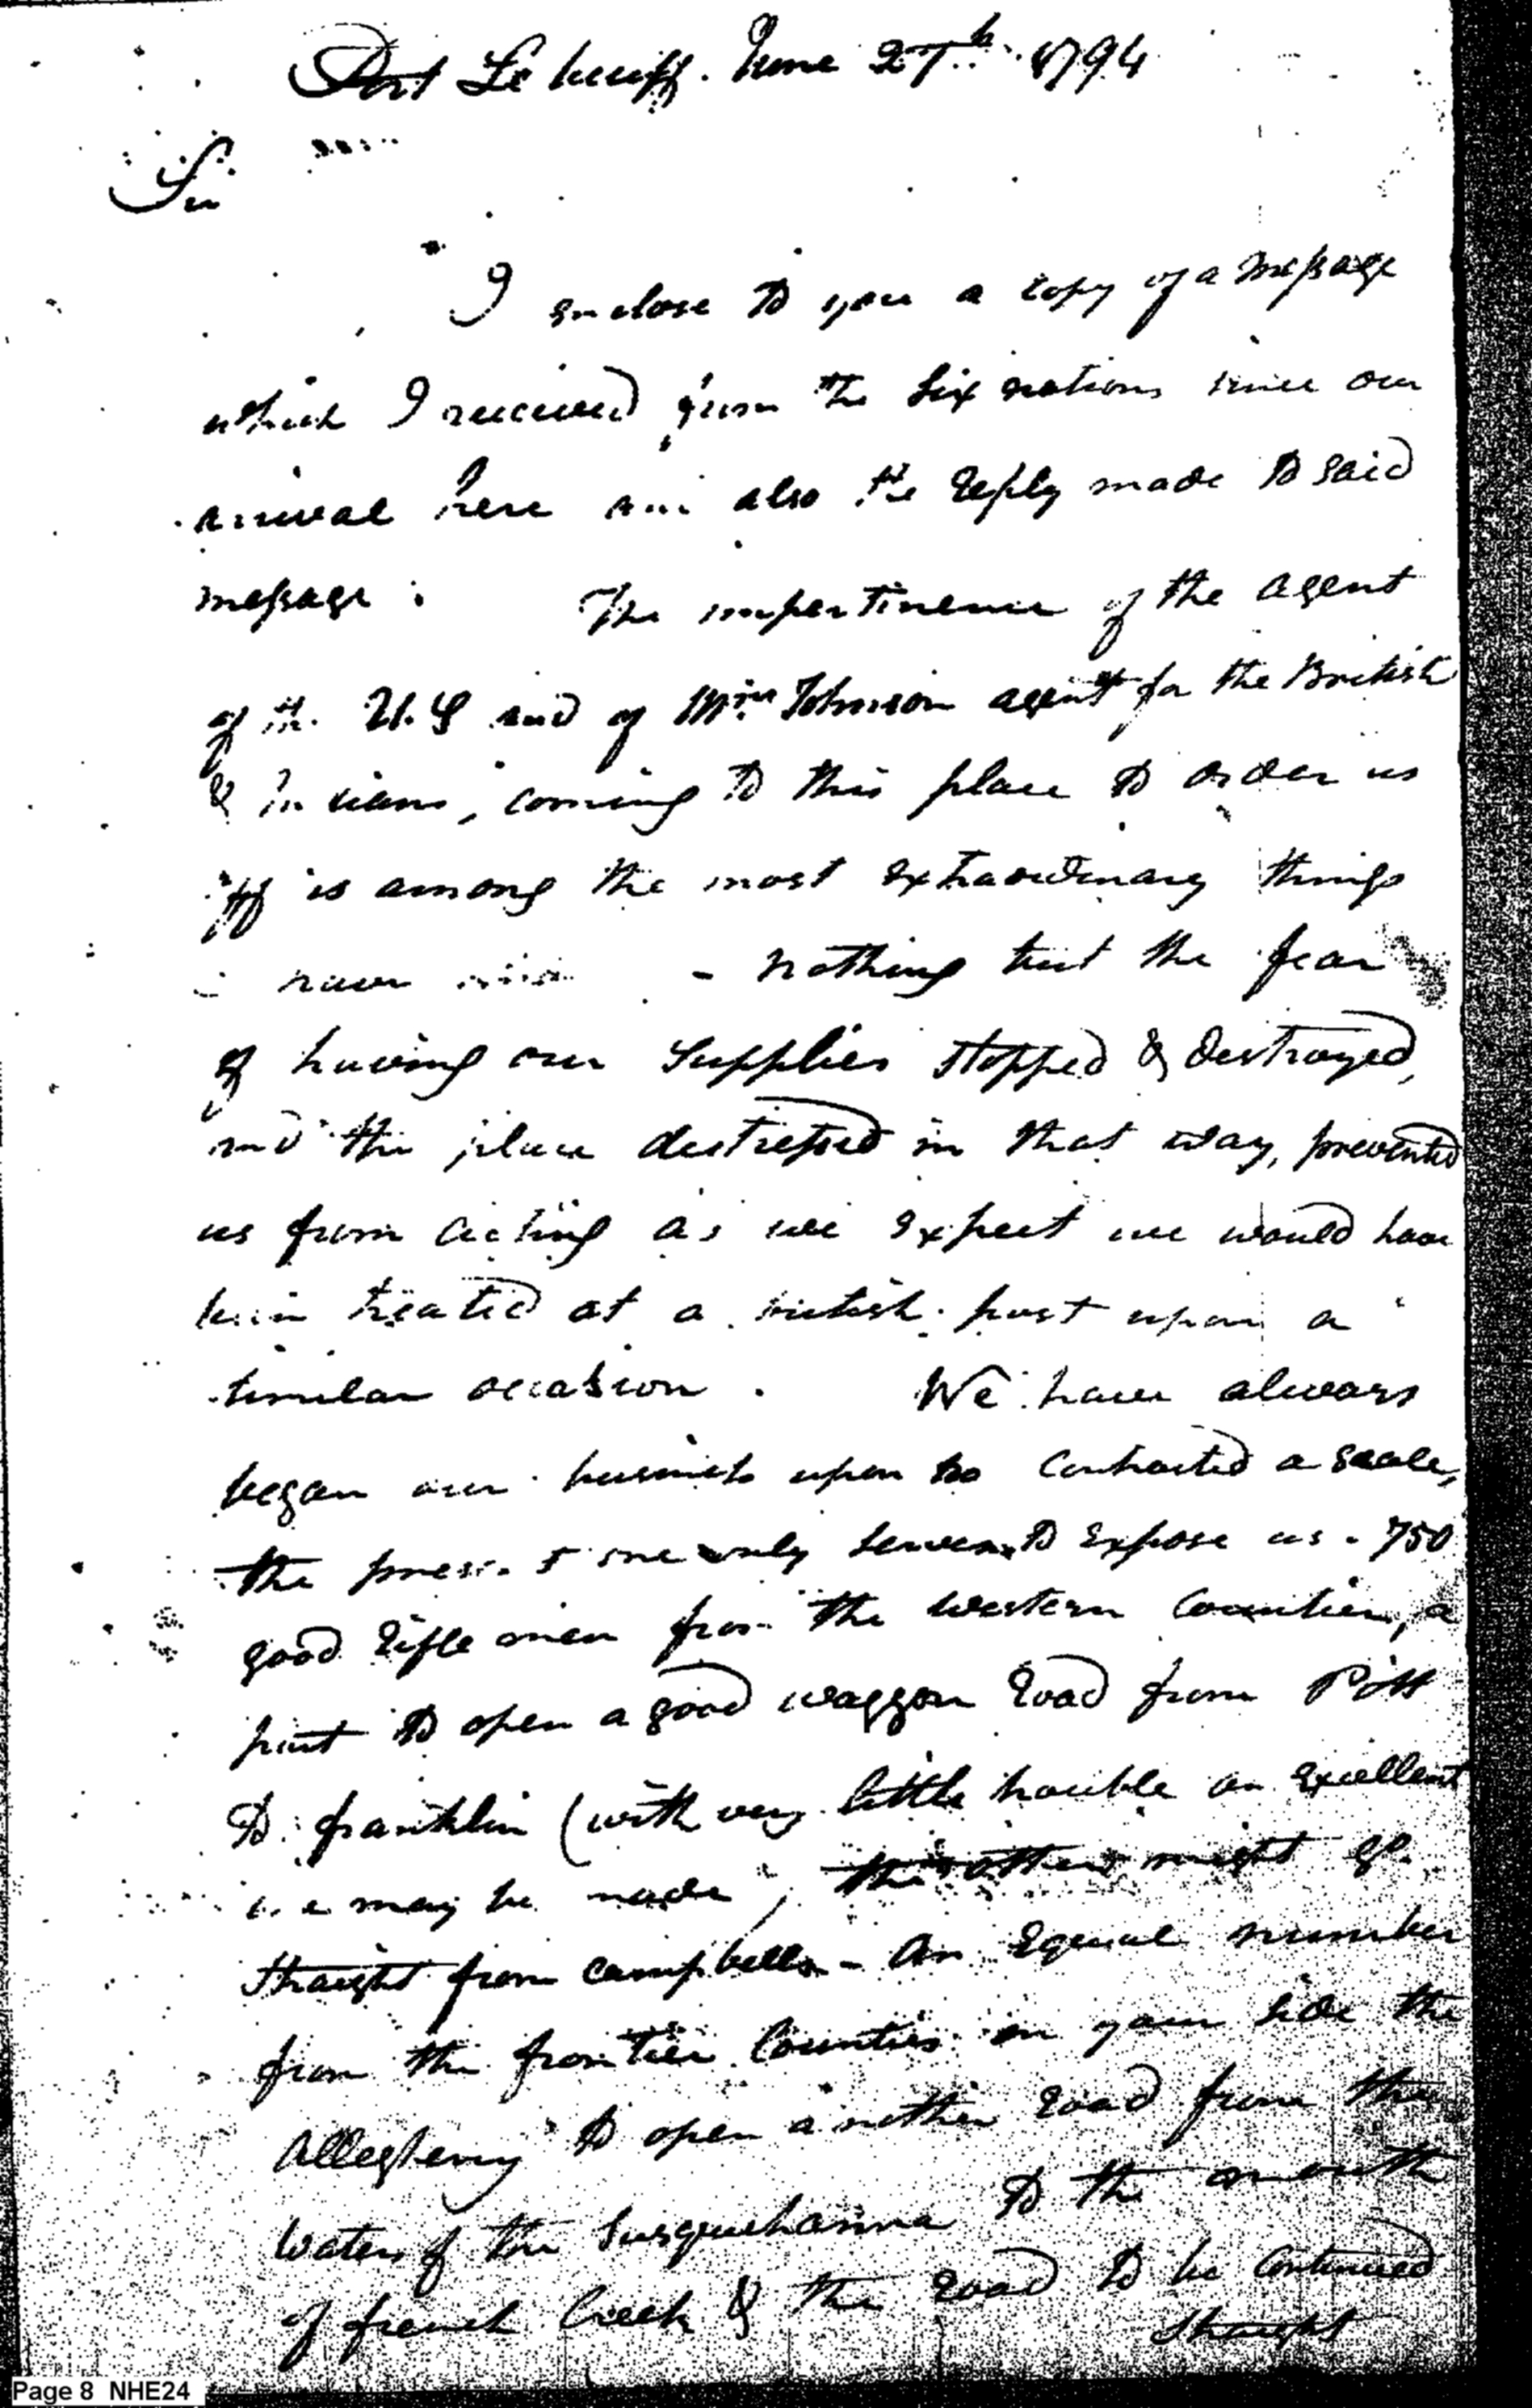 Fort Le beuff. June 27th. 1794
Sir
I enclose to you a copy of a Message
which I received from the Six nations since our
arrival here and also the reply made to said
message. The impertinence of the agent
of the U.S and of Mr. Johnson agent for the British
& Indians, coming to this place to order us
off is among the most extraordinary things
I have - nothing but the fear
of having our Supplies stopped & destroyed,
and the place distressed in that way, prevented
us from acting as we expect we would have
been treated at a british post upon a
similar occasion. We have always
began our business upon too Contracted a scale,
the present one only serves to expose us. 750
good rifle men from the western Counties, a
part to open a good waggon road from Pitt
to franklin (with very little trouble an excellent
one may be made, the others might go
straight from campbells - An equal number
from the frontier Counties on your side the
Allegheny to open another road from the
Waters of the Susquehanna to the mouth
of french Creek & the road to be Continued
straight
Page 8 NHE24